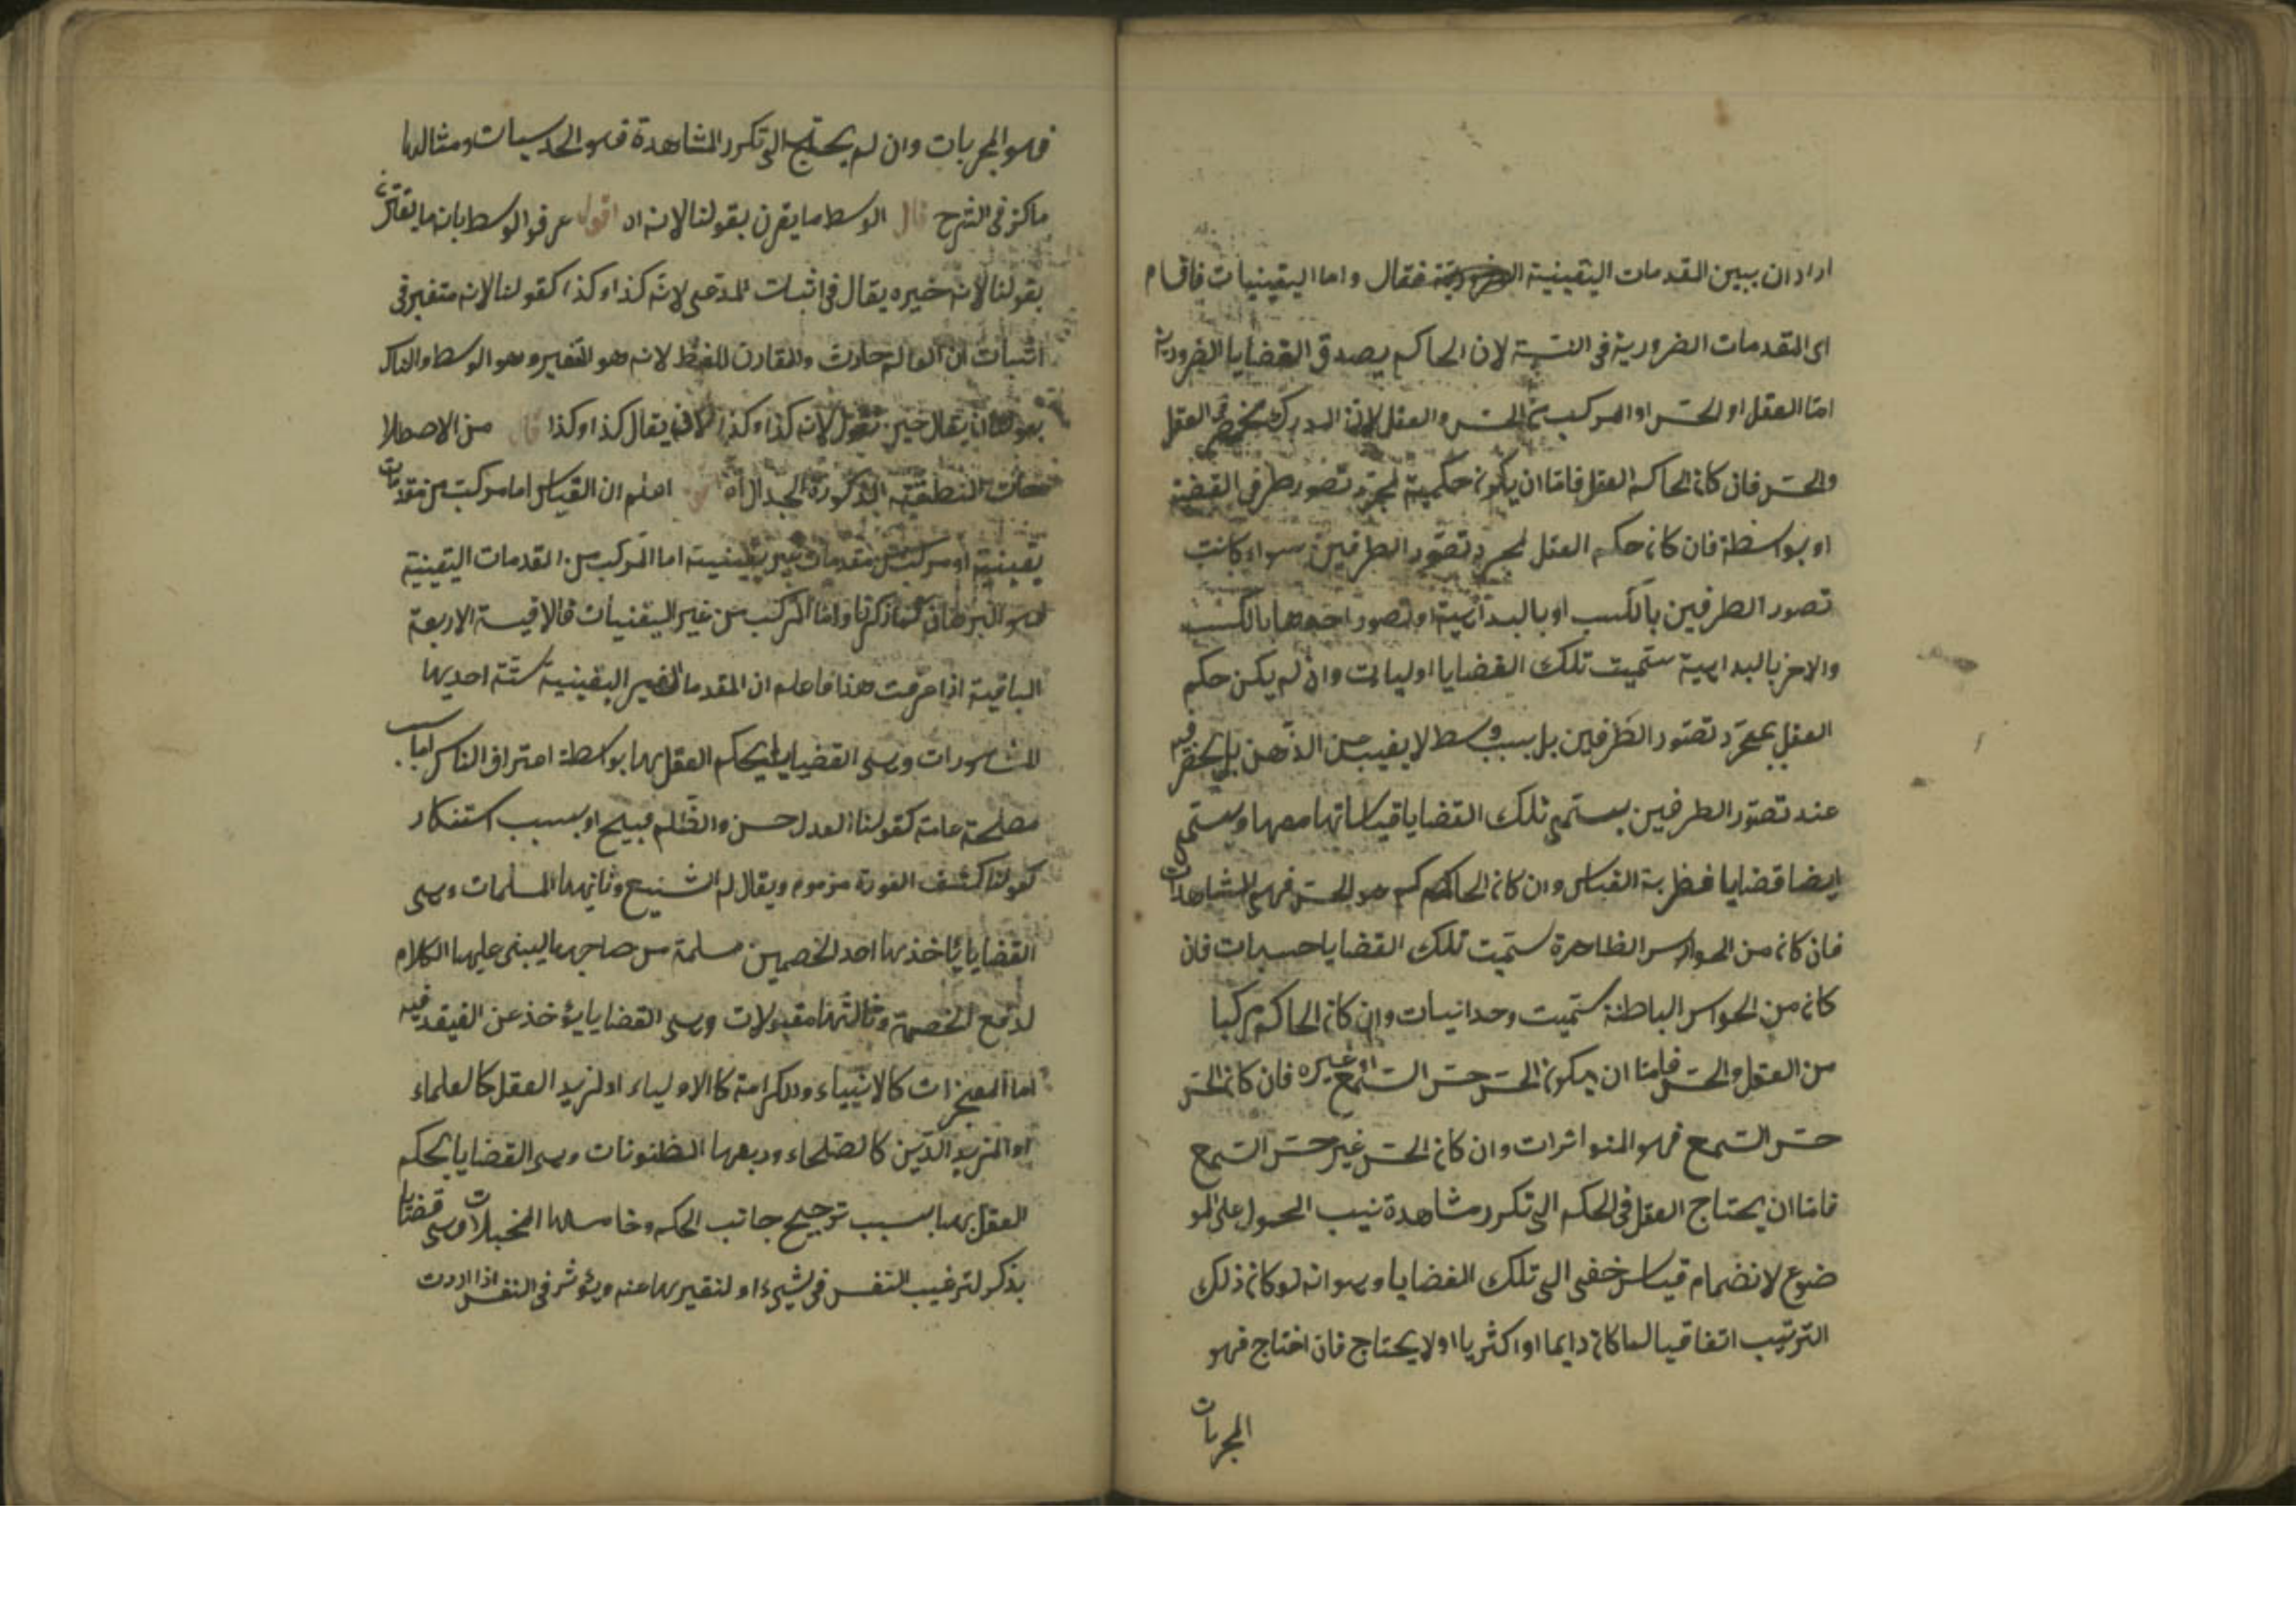 اراد ان يبين المقدمات اليقينية الضرورية فقال واما اليقينيات فاقسام
اى المقدمات الضرورية فى النسبة لان الحاكم يصدق القضايا الضرورية
امّا العقل او الحسّ او المركب من الحسّ والعقل لان المدرك منحصر فى العقل
والحسّ فان كان الحاكم العقل فامّا ان يكون حكمية لمجرّد تصور طرفى القضية
او بواسطة فان كان حكم العقل لمجرد تصوّر الطرفين سواء كانت
تصور الطرفين بالكسب او بالبداهية او تصور احدهما بالكسب
والاخر بالبداهية سمّيت تلك القضايا اوليات وان لم يكن حكم
العقل بمجرّد تصوّر الطرفين بل بسبب وسط لا يغيب عن الذّهن بل يحضر فيه
عند تصوّر الطرفين يسمّى تلك القضايا قياساتها معها ويسمّى
ايضا قضايا فطرية القياس وان كان الحاكم هو الحسّ فهى المشاهدات
فان كان من الحواس الظاهرة سمّيت تلك القضايا حسيات فان
كان من الحواس الباطنة سمّيت وحدانيات وان كان الحاكم مركبا
من العقل والحسّ فامّا ان يكون الحسّ حسّ السّمع او غيره فان كان الحسّ
حسّ السّمع فهو المتواترات وان كان الحسّ غير حسّ السّمع
فامّا ان يحتاج العقل فى الحكم الى تكرر مشاهدة نيب المحمول على المو
ضوع لانضمام قياس خفى الى تلك القضايا وهو انه لو كان ذلك
الترتيب اتفاقيا لما كان دايما او اكثريا او لا يحتاج فان احتاج فهو
المجربات
فهو المجربات وان لم يحتج الى تكرر المشاهدة فهو الحدسيات ومثالها
ما كنز فى الشرح قال الوسط ما يقرن بقولنا لانه اه اقول عرفوا الوسط بانه ما يقترن
بقولنا لانه خيره يقال فى اثبات المدّعى لانّه كذا وكذا كقولنا لانه متغير فى
اثبات ان العالم حادث والمقارن للفظ لانه هو المتغير وهو الوسط والناك
يقال حين تقول لانه كذا وكذا يقال كذا وكذا قال من الاصطلا
حات المنطقية المذكورة الجدال اه اعلم ان القياس اما مركب من مقدمات
يقينية او مركب من مقدمات غير يقينية اما المركب من المقدمات اليقينية
فهو البرهان كما ذكرنا وامّا المركب من غير اليقنيات فالاقيسة الاربعة
الباقية اذا عرفت هذا فاعلم ان المقدمات الغير اليقينية ستّة احديها
المشهورات وهى القضايا يحكم العقل بها بواسطة اعتراف الناس اما بسبب
مصلحة عامة كقولنا العدل حسن والظّلم قبيح او بسبب استنكار
كقولنا كشف العورة مزموم ويقال له الشنيع وثانيها المسلمات وهى
القضايا يأخذها احد الخصمين مسلمة من صاحبها ليبنى عليها الكلام
لدفع الخصمة وثالثها مقبولات وهى القضايا يؤخذ عن الغيقد فيه
اما المعجزات كالانبياء والكرامة كالاولياء او لمزيد العقل كالعلماء
او المزيد الدّين كالصّلحاء وربعها المظنونات وهى القضايا يحكم
العقل بها بسبب ترجيح جانب الحكم وخامسها المخيلات وهى قضايا
يذكر لترغيب النفس فى شيء او لتقيرها عنه ويؤثر فى النفس اذا اردت